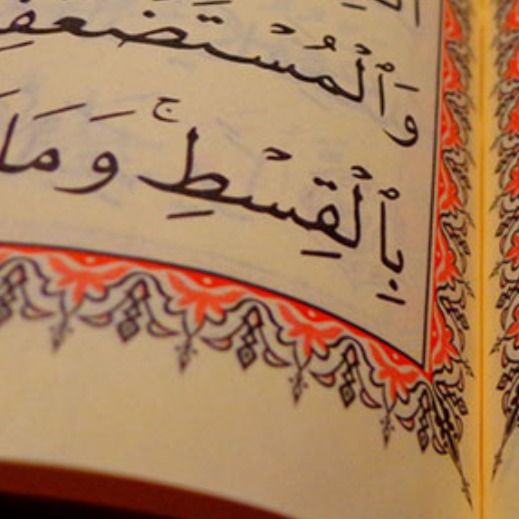 وَٱلْمُسْتَضْعَفِ
بِٱلْقِسْطِ ۚ وَمَا